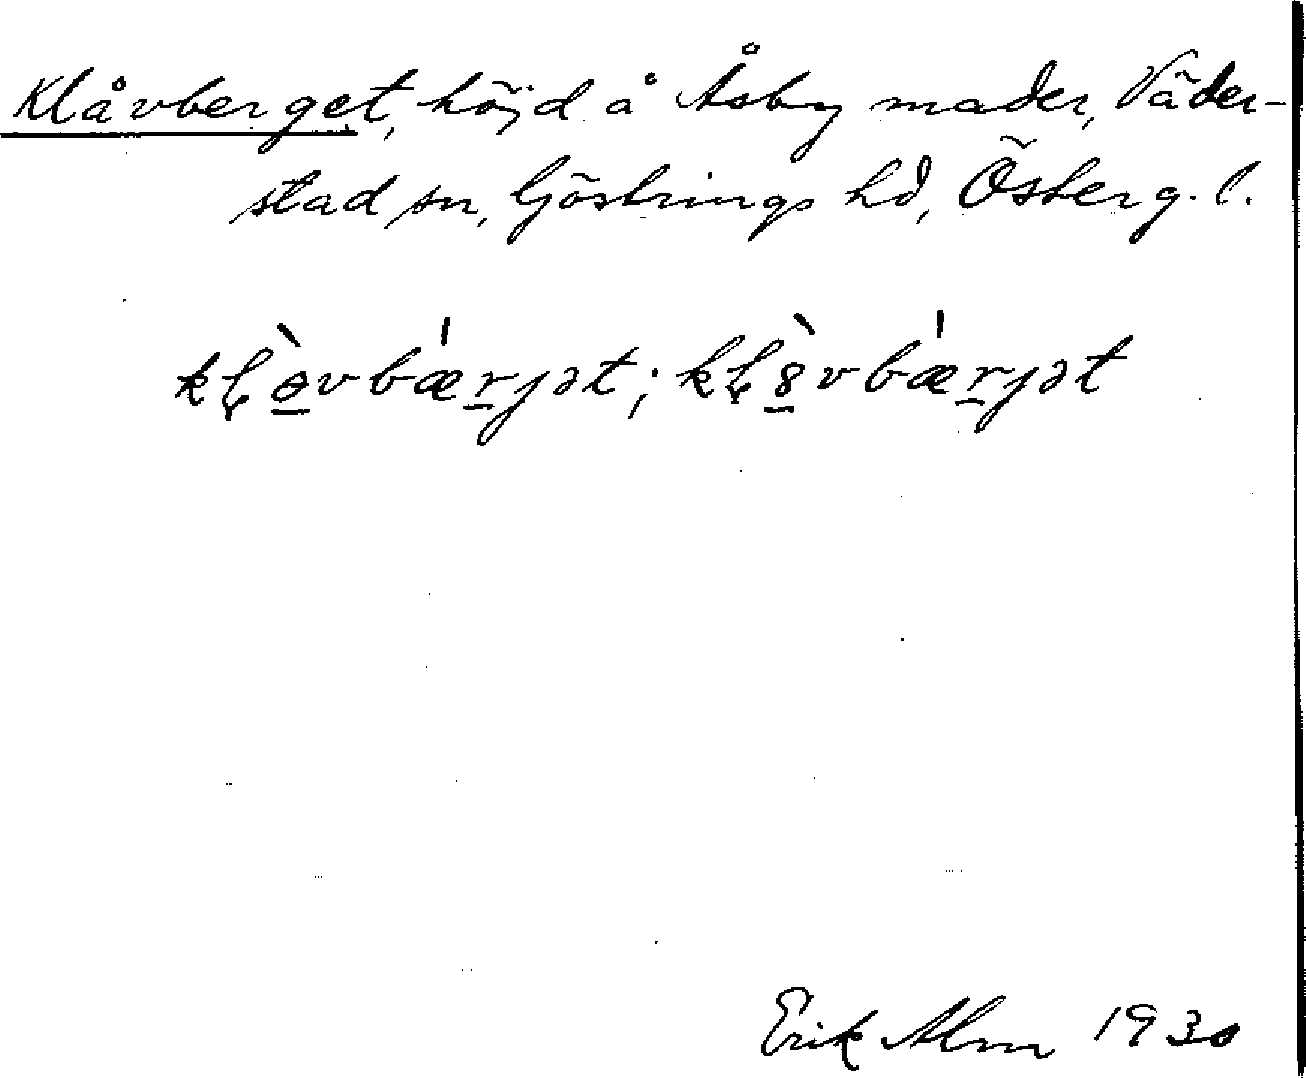 Klåvberget, höjd å Åsby mader, Väder-
stad sn, Göstrings hd, Österg. l.
kḷòvbǽrjət; kḷ8̀vbǽrjət
Erik Alm 1930